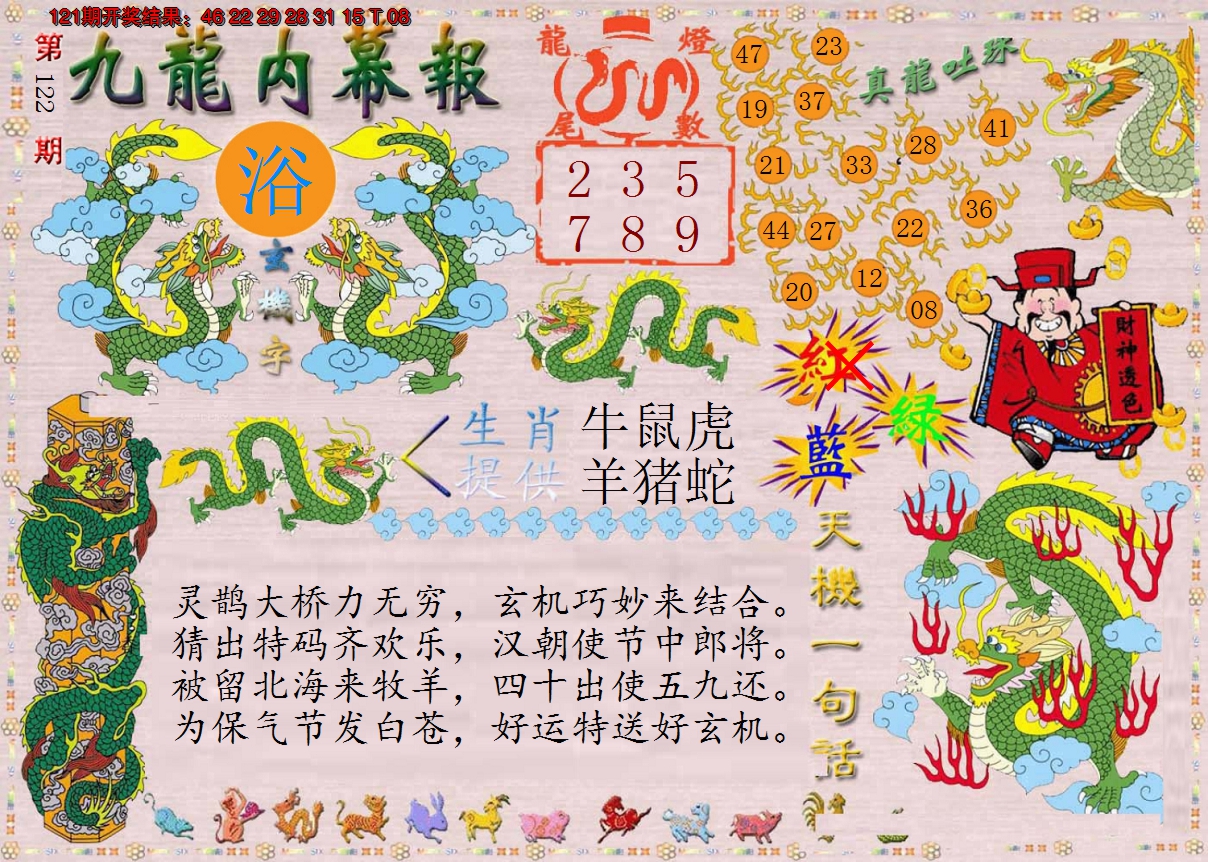 121期开奖结果：46 22 29 28 31 15 T 08
第122期
九龍内幕報
浴
玄機字
龍燈尾數
2 3 5
7 8 9
真龍吐珠
47 23
19 37
28 41
21 33
36
44 27 22
12
20 08
財神透色
紅
綠
藍
生肖提供
牛鼠虎
羊猪蛇
天機一句话
灵鹊大桥力无穷，玄机巧妙来结合。
猜出特码齐欢乐，汉朝使节中郎将。
被留北海来牧羊，四十出使五九还。
为保气节发白苍，好运特送好玄机。